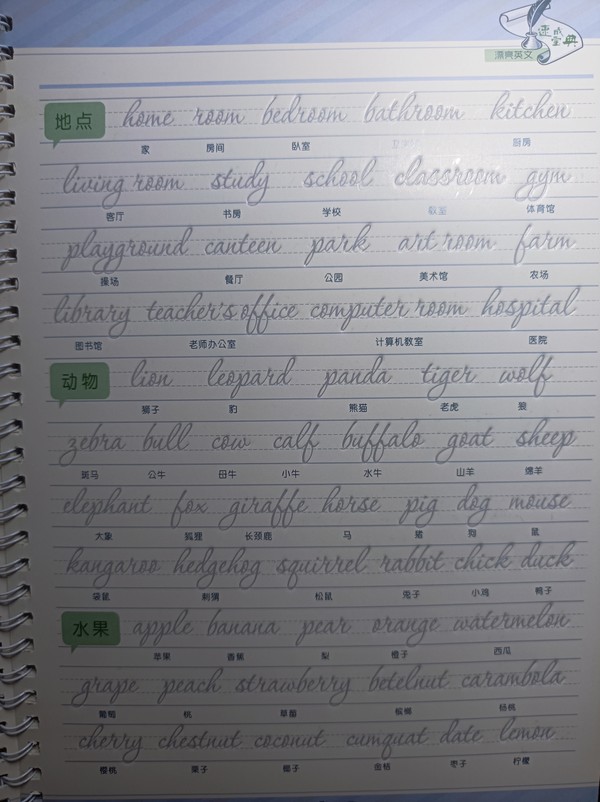 速成宝典
漂亮英文
地点 home room bedroom bathroom kitchen
家 房间 卧室 厨房
living room study school classroom gym
客厅 书房 学校 教室 体育馆
playground canteen park art room farm
操场 餐厅 公园 美术馆 农场
library teacher's office computer room hospital
图书馆 老师办公室 计算机教室 医院
动物 lion leopard panda tiger wolf
狮子 豹 熊猫 老虎 狼
zebra bull cow calf buffalo goat sheep
斑马 公牛 母牛 小牛 水牛 山羊 绵羊
elephant fox giraffe horse pig dog mouse
大象 狐狸 长颈鹿 马 猪 狗 鼠
kangaroo hedgehog squirrel rabbit chick duck
袋鼠 刺猬 松鼠 兔子 小鸡 鸭子
水果 apple banana pear orange watermelon
苹果 香蕉 梨 橙子 西瓜
grape peach strawberry betelnut carambola
葡萄 桃 草莓 槟榔 杨桃
cherry chestnut coconut cumquat date lemon
樱桃 栗子 椰子 金桔 枣子 柠檬